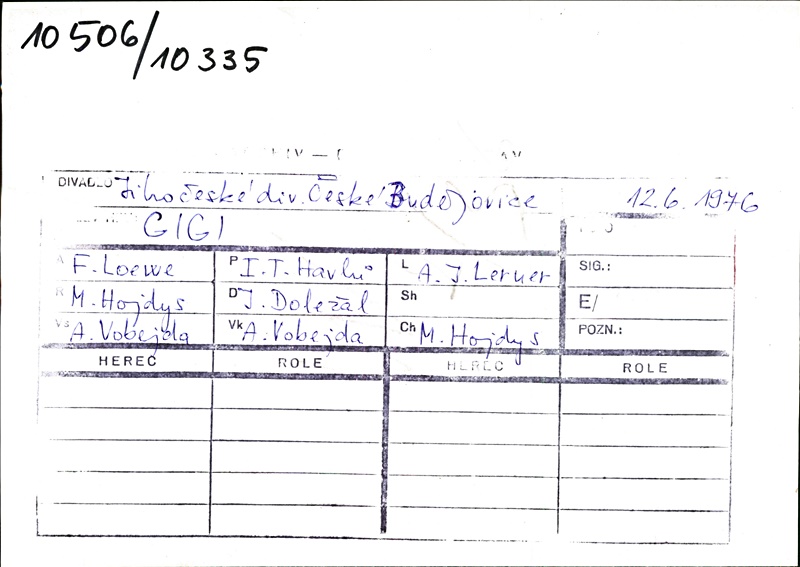 10 506/10 335
DIVADLO Jihočeské div. České Budějovice 12.6.1976
GIGI
A F. Loewe P I. T. Havlů L A. J. Lerner SIG.:
R M. Hojdys D J. Doležal Sh E/
Vs A. Vobejda Vk A. Vobejda Ch M. Hojdys POZN.:
HEREC ROLE HEREC ROLE